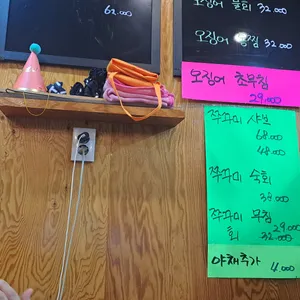 62.000
오징어 물회 32.000
오징어 통찜 32.000
오징어 초무침
29.000
쭈꾸미 샤브
68.000
48.000
쭈꾸미 숙회
38.000
쭈꾸미 무침
29.000
회 32.000
야채추가
4.000